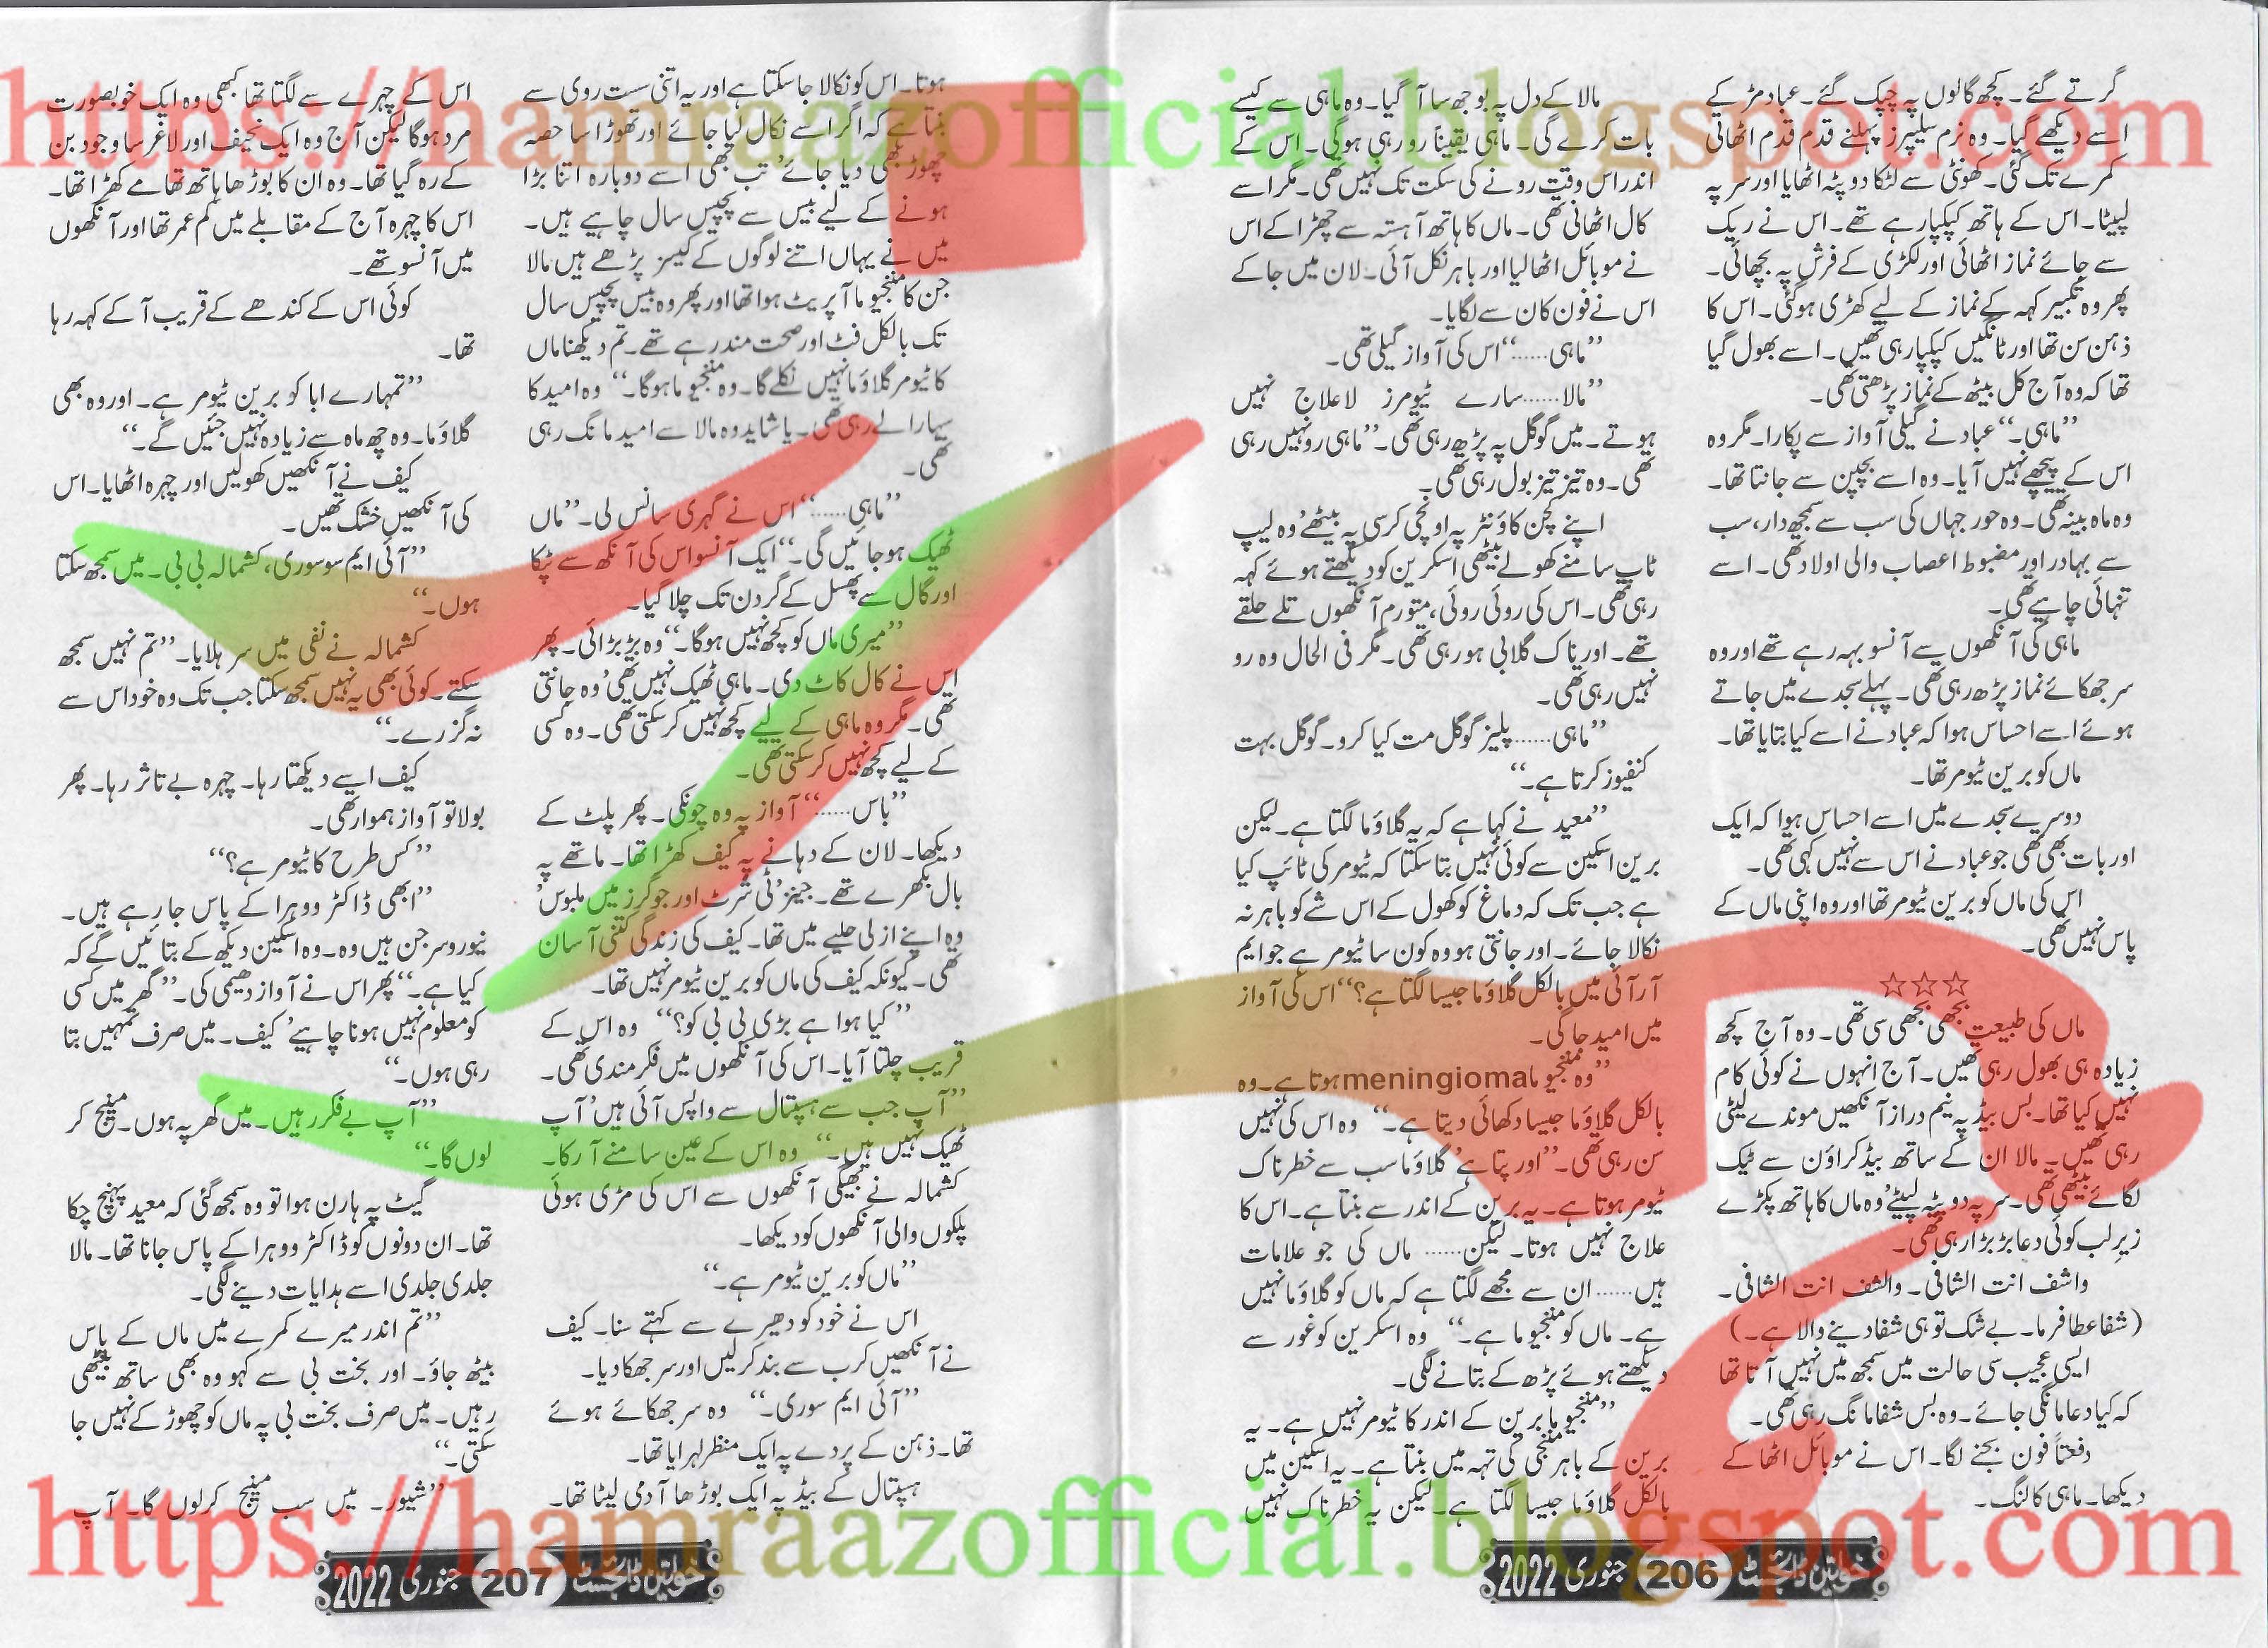 گرتے گئے۔ کچھ گالوں پہ چپک گئے۔ عباد مڑ کے
اسے دیکھے گیا۔ وہ نرم سلیپرز پہنے قدم قدم اٹھاتی
کمرے تک گئی۔ کھونٹی سے لٹکا دوپٹہ اٹھایا اور سر پہ
لپیٹا۔ اس کے ہاتھ کپکپا رہے تھے۔ اس نے ریک
سے جائے نماز اٹھائی اور لکڑی کے فرش پہ بچھائی۔
پھر وہ تکبیر کہہ کے نماز کے لیے کھڑی ہوگئی۔ اس کا
ذہن سن تھا اور ٹانگیں کپکپا رہی تھیں۔ اسے بھول گیا
تھا کہ وہ آج کل بیٹھ کے نماز پڑھتی تھی۔
”ماہی۔“ عباد نے گیلی آواز سے پکارا۔ مگر وہ
اس کے پیچھے نہیں آیا۔ وہ اسے بچپن سے جانتا تھا۔
وہ ماہ بینہ تھی۔ وہ حور جہاں کی سب سے سمجھ دار، سب
سے بہادر اور مضبوط اعصاب والی اولاد تھی۔ اسے
تنہائی چاہیے تھی۔
ماہی کی آنکھوں سے آنسو بہہ رہے تھے اور وہ
سر جھکائے نماز پڑھ رہی تھی۔ پہلے سجدے میں جاتے
ہوئے اسے احساس ہوا کہ عباد نے اسے کیا بتایا تھا۔
ماں کو برین ٹیومر تھا۔
دوسرے سجدے میں اسے احساس ہوا کہ ایک
اور بات بھی تھی جو عباد نے اس سے نہیں کہی تھی۔
اس کی ماں کو برین ٹیومر تھا اور وہ اپنی ماں کے
پاس نہیں تھی۔
☆☆☆
ماں کی طبیعت بجھی بجھی سی تھی۔ وہ آج کچھ
زیادہ ہی بھول رہی تھیں۔ آج انہوں نے کوئی کام
نہیں کیا تھا۔ بس بیڈ پہ نیم دراز آنکھیں موندے لیٹی
رہی تھیں۔ مالا ان کے ساتھ بیڈ کراؤن سے ٹیک
لگائے بیٹھی تھی۔ سر پہ دوپٹہ لپیٹے‘ وہ ماں کا ہاتھ پکڑے
زیرِ لب کوئی دعا بڑبڑا رہی تھی۔
واشف انت الشافی۔ والشف انت الشافی۔
(شفا عطا فرما۔ بے شک تو ہی شفا دینے والا ہے۔)
ایسی عجیب سی حالت میں سمجھ میں نہیں آتا تھا
کہ کیا دعا مانگی جائے۔ وہ بس شفا مانگ رہی تھی۔
دفعتاً فون بجنے لگا۔ اس نے موبائل اٹھا کے
دیکھا۔ ماہی کالنگ۔
مالا کے دل پہ بوجھ سا آ گیا۔ وہ ماہی سے کیسے
بات کرے گی۔ ماہی یقیناً رو رہی ہوگی۔ اس کے
اندر اس وقت رونے کی سکت تک نہیں تھی۔ مگر اسے
کال اٹھانی تھی۔ ماں کا ہاتھ آہستہ سے چھڑا کے اس
نے موبائل اٹھا لیا اور باہر نکل آئی۔ لان میں جا کے
اس نے فون کان سے لگایا۔
”ماہی……“ اس کی آواز گیلی تھی۔
”مالا…… سارے ٹیومرز لاعلاج نہیں
ہوتے۔ میں گوگل پہ پڑھ رہی تھی۔“ ماہی رو نہیں رہی
تھی۔ وہ تیز تیز بول رہی تھی۔
اپنے کچن کاؤنٹر پہ اونچی کرسی پہ بیٹھے‘ وہ لیپ
ٹاپ سامنے کھولے بیٹھی اسکرین کو دیکھتے ہوئے کہہ
رہی تھی۔ اس کی روئی روئی، متورم آنکھوں تلے حلقے
تھے۔ اور ناک گلابی ہو رہی تھی۔ مگر فی الحال وہ رو
نہیں رہی تھی۔
”ماہی…… پلیز گوگل مت کیا کرو۔ گوگل بہت
کنفیوز کرتا ہے۔“
”معید نے کہا ہے کہ یہ گلاؤما لگتا ہے۔ لیکن
برین اسکین سے کوئی نہیں بتا سکتا کہ ٹیومر کی ٹائپ کیا
ہے جب تک کہ دماغ کو کھول کے اس شے کو باہر نہ
نکالا جائے۔ اور جانتی ہو وہ کون سا ٹیومر ہے جو ایم
آر آئی میں بالکل گلاؤما جیسا لگتا ہے؟“ اس کی آواز
میں امید جاگی۔
”وہ منجیو ما meningioma ہوتا ہے۔ وہ
بالکل گلاؤما جیسا دکھائی دیتا ہے۔“ وہ اس کی نہیں
سن رہی تھی۔ ”اور پتا ہے‘ گلاؤما سب سے خطرناک
ٹیومر ہوتا ہے۔ یہ برین کے اندر سے بنتا ہے۔ اس کا
علاج نہیں ہوتا۔ لیکن…… ماں کی جو علامات
ہیں…… ان سے مجھے لگتا ہے کہ ماں کو گلاؤما نہیں
ہے۔ ماں کو منجیو ما ہے۔“ وہ اسکرین کو غور سے
دیکھتے ہوئے پڑھ کے بتانے لگی۔
”منجیو ما برین کے اندر کا ٹیومر نہیں ہے۔ یہ
برین کے باہر منجی کی تہہ میں بنتا ہے۔ یہ اسکین میں
بالکل گلاؤما جیسا لگتا ہے۔ لیکن یہ خطرناک نہیں
خواتین ڈائجسٹ 206 جنوری 2022
ہوتا۔ اس کو نکالا جا سکتا ہے اور یہ اتنی سست روی سے
بنتا ہے کہ اگر اسے نکال لیا جائے اور تھوڑا سا حصہ
چھوڑ بھی دیا جائے‘ تب بھی اسے دوبارہ اتنا بڑا
ہونے کے لیے بیس سے پچیس سال چاہیے ہیں۔
میں نے یہاں اتنے لوگوں کے کیسز پڑھے ہیں مالا
جن کا منجیو ما آپریٹ ہوا تھا اور پھر وہ بیس پچیس سال
تک بالکل فٹ اور صحت مند رہے تھے۔ تم دیکھنا ماں
کا ٹیومر گلاؤما نہیں نکلے گا۔ وہ منجیو ما ہوگا۔“ وہ امید کا
سہارا لے رہی تھی۔ یا شاید وہ مالا سے امید مانگ رہی
تھی۔
”ماہی……“ اس نے گہری سانس لی۔ ”ماں
ٹھیک ہو جائیں گی۔“ ایک آنسو اس کی آنکھ سے ٹپکا
اور گال سے پھسل کے گردن تک چلا گیا۔
”میری ماں کو کچھ نہیں ہوگا۔“ وہ بڑبڑائی۔ پھر
اس نے کال کاٹ دی۔ ماہی ٹھیک نہیں تھی‘ وہ جانتی
تھی۔ مگر وہ ماہی کے لیے کچھ نہیں کر سکتی تھی۔ وہ کسی
کے لیے کچھ نہیں کر سکتی تھی۔
”باس……“ آواز پہ وہ چونکی۔ پھر پلٹ کے
دیکھا۔ لان کے دہانے پہ کیف کھڑا تھا۔ ماتھے پہ
بال بکھرے تھے۔ جینز‘ ٹی شرٹ اور جوگرز میں ملبوس‘
وہ اپنے ازلی حلیے میں تھا۔ کیف کی زندگی کتنی آسان
تھی۔ کیونکہ کیف کی ماں کو برین ٹیومر نہیں تھا۔
”کیا ہوا ہے بڑی بی بی کو؟“ وہ اس کے
قریب چلتا آیا۔ اس کی آنکھوں میں فکرمندی تھی۔
”آپ جب سے ہسپتال سے واپس آئی ہیں‘ آپ
ٹھیک نہیں ہیں۔“ وہ اس کے عین سامنے آ رکا۔
کشمالہ نے بھیگی آنکھوں سے اس کی مڑی ہوئی
پلکوں والی آنکھوں کو دیکھا۔
”ماں کو برین ٹیومر ہے۔“
اس نے خود کو دھیرے سے کہتے سنا۔ کیف
نے آنکھیں کرب سے بند کر لیں اور سر جھکا دیا۔
”آئی ایم سوری۔“ وہ سر جھکائے ہوئے
تھا۔ ذہن کے پردے پہ ایک منظر لہرایا تھا۔
ہسپتال کے بیڈ پہ ایک بوڑھا آدمی لیٹا تھا۔
اس کے چہرے سے لگتا تھا کبھی وہ ایک خوبصورت
مرد ہوگا لیکن آج وہ ایک نحیف اور لاغر سا وجود بن
کے رہ گیا تھا۔ وہ ان کا بوڑھا ہاتھ تھامے کھڑا تھا۔
اس کا چہرہ آج کے مقابلے میں کم عمر تھا اور آنکھوں
میں آنسو تھے۔
کوئی اس کے کندھے کے قریب آ کے کہہ رہا
تھا۔
”تمہارے ابا کو برین ٹیومر ہے۔ اور وہ بھی
گلاؤما۔ وہ چھ ماہ سے زیادہ نہیں جئیں گے۔“
کیف نے آنکھیں کھولیں اور چہرہ اٹھایا۔ اس
کی آنکھیں خشک تھیں۔
”آئی ایم سو سوری، کشمالہ بی بی۔ میں سمجھ سکتا
ہوں۔“
کشمالہ نے نفی میں سر ہلایا۔ ”تم نہیں سمجھ
سکتے۔ کوئی بھی یہ نہیں سمجھ سکتا جب تک وہ خود اس سے
نہ گزرے۔“
کیف اسے دیکھتا رہا۔ چہرہ بے تاثر رہا۔ پھر
بولا تو آواز ہموار تھی۔
”کس طرح کا ٹیومر ہے؟“
”ابھی ڈاکٹر ووہرا کے پاس جا رہے ہیں۔
نیوروسرجن ہیں وہ۔ وہ اسکین دیکھ کے بتائیں گے کہ
کیا ہے۔“ پھر اس نے آواز دھیمی کی۔ ”گھر میں کسی
کو معلوم نہیں ہونا چاہیے‘ کیف۔ میں صرف تمہیں بتا
رہی ہوں۔“
”آپ بے فکر رہیں۔ میں گھر پہ ہوں۔ مینیج کر
لوں گا۔“
گیٹ پہ ہارن ہوا تو وہ سمجھ گئی کہ معید پہنچ چکا
تھا۔ ان دونوں کو ڈاکٹر ووہرا کے پاس جانا تھا۔ مالا
جلدی جلدی اسے ہدایات دینے لگی۔
”تم اندر میرے کمرے میں ماں کے پاس
بیٹھ جاؤ۔ اور بخت بی سے کہو وہ بھی ساتھ بیٹھی
رہیں۔ میں صرف بخت بی پہ ماں کو چھوڑ کے نہیں جا
سکتی۔“
”شیور۔ میں سب مینیج کر لوں گا۔ آپ
خواتین ڈائجسٹ 207 جنوری 2022
https://hamraazofficial.blogspot.com
https://hamraazofficial.blogspot.com